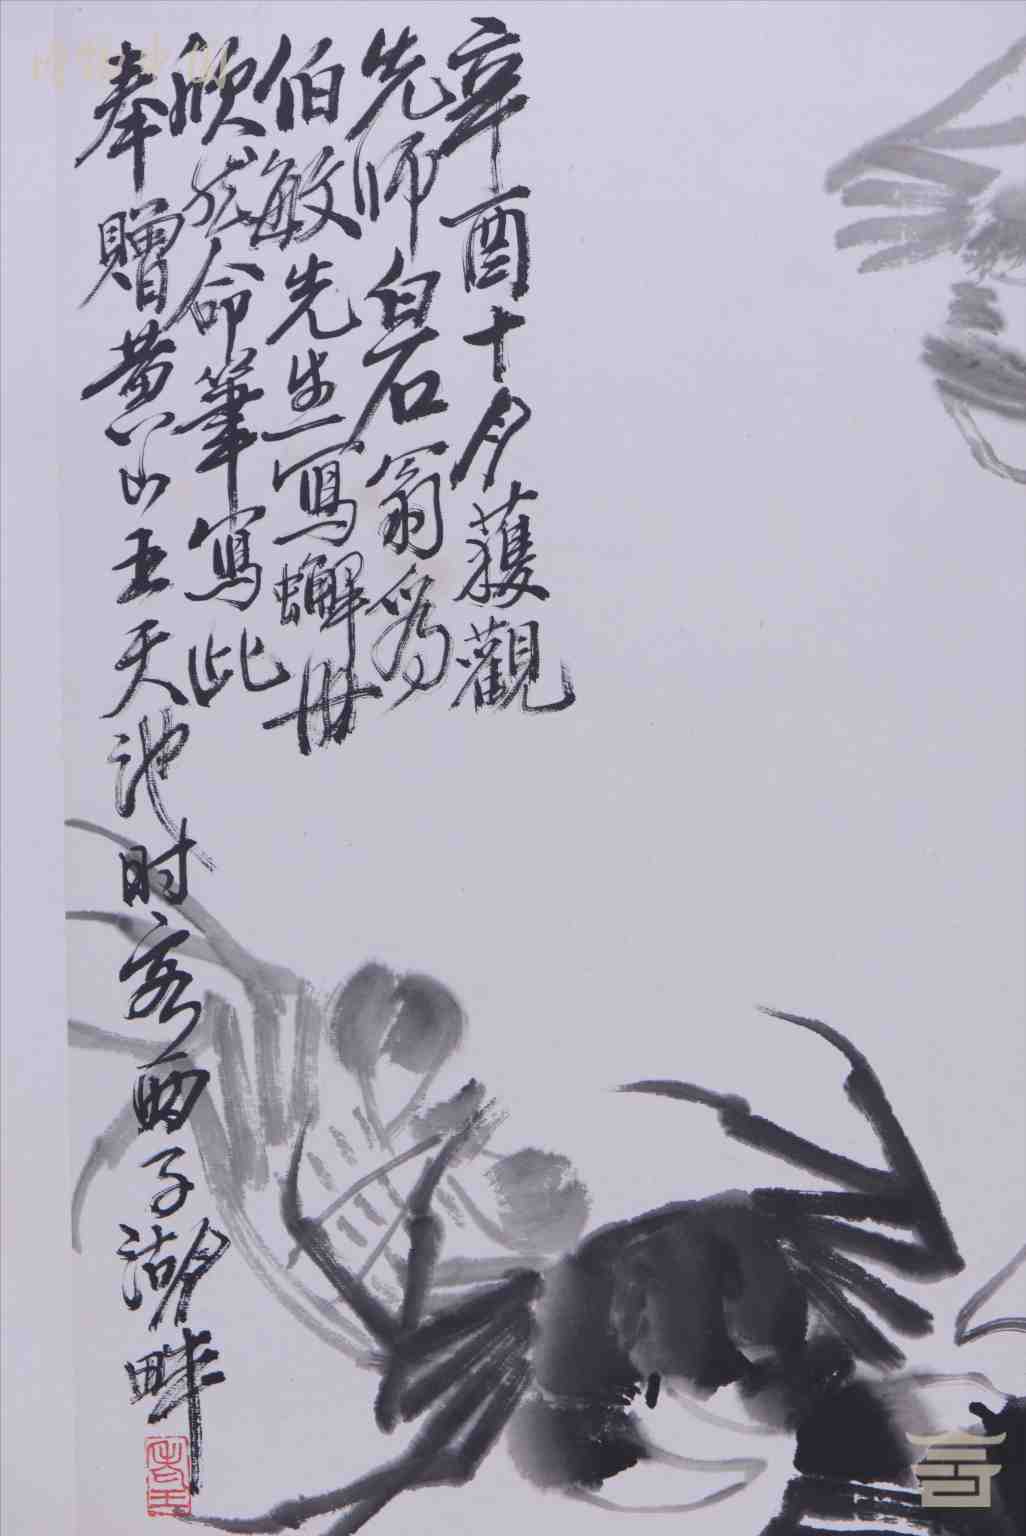 辛酉十月獲觀
先师白石翁為
伯敏先生寫蠏毋
欣然命筆寫此
奉贈黄山玉天池时客西子湖畔